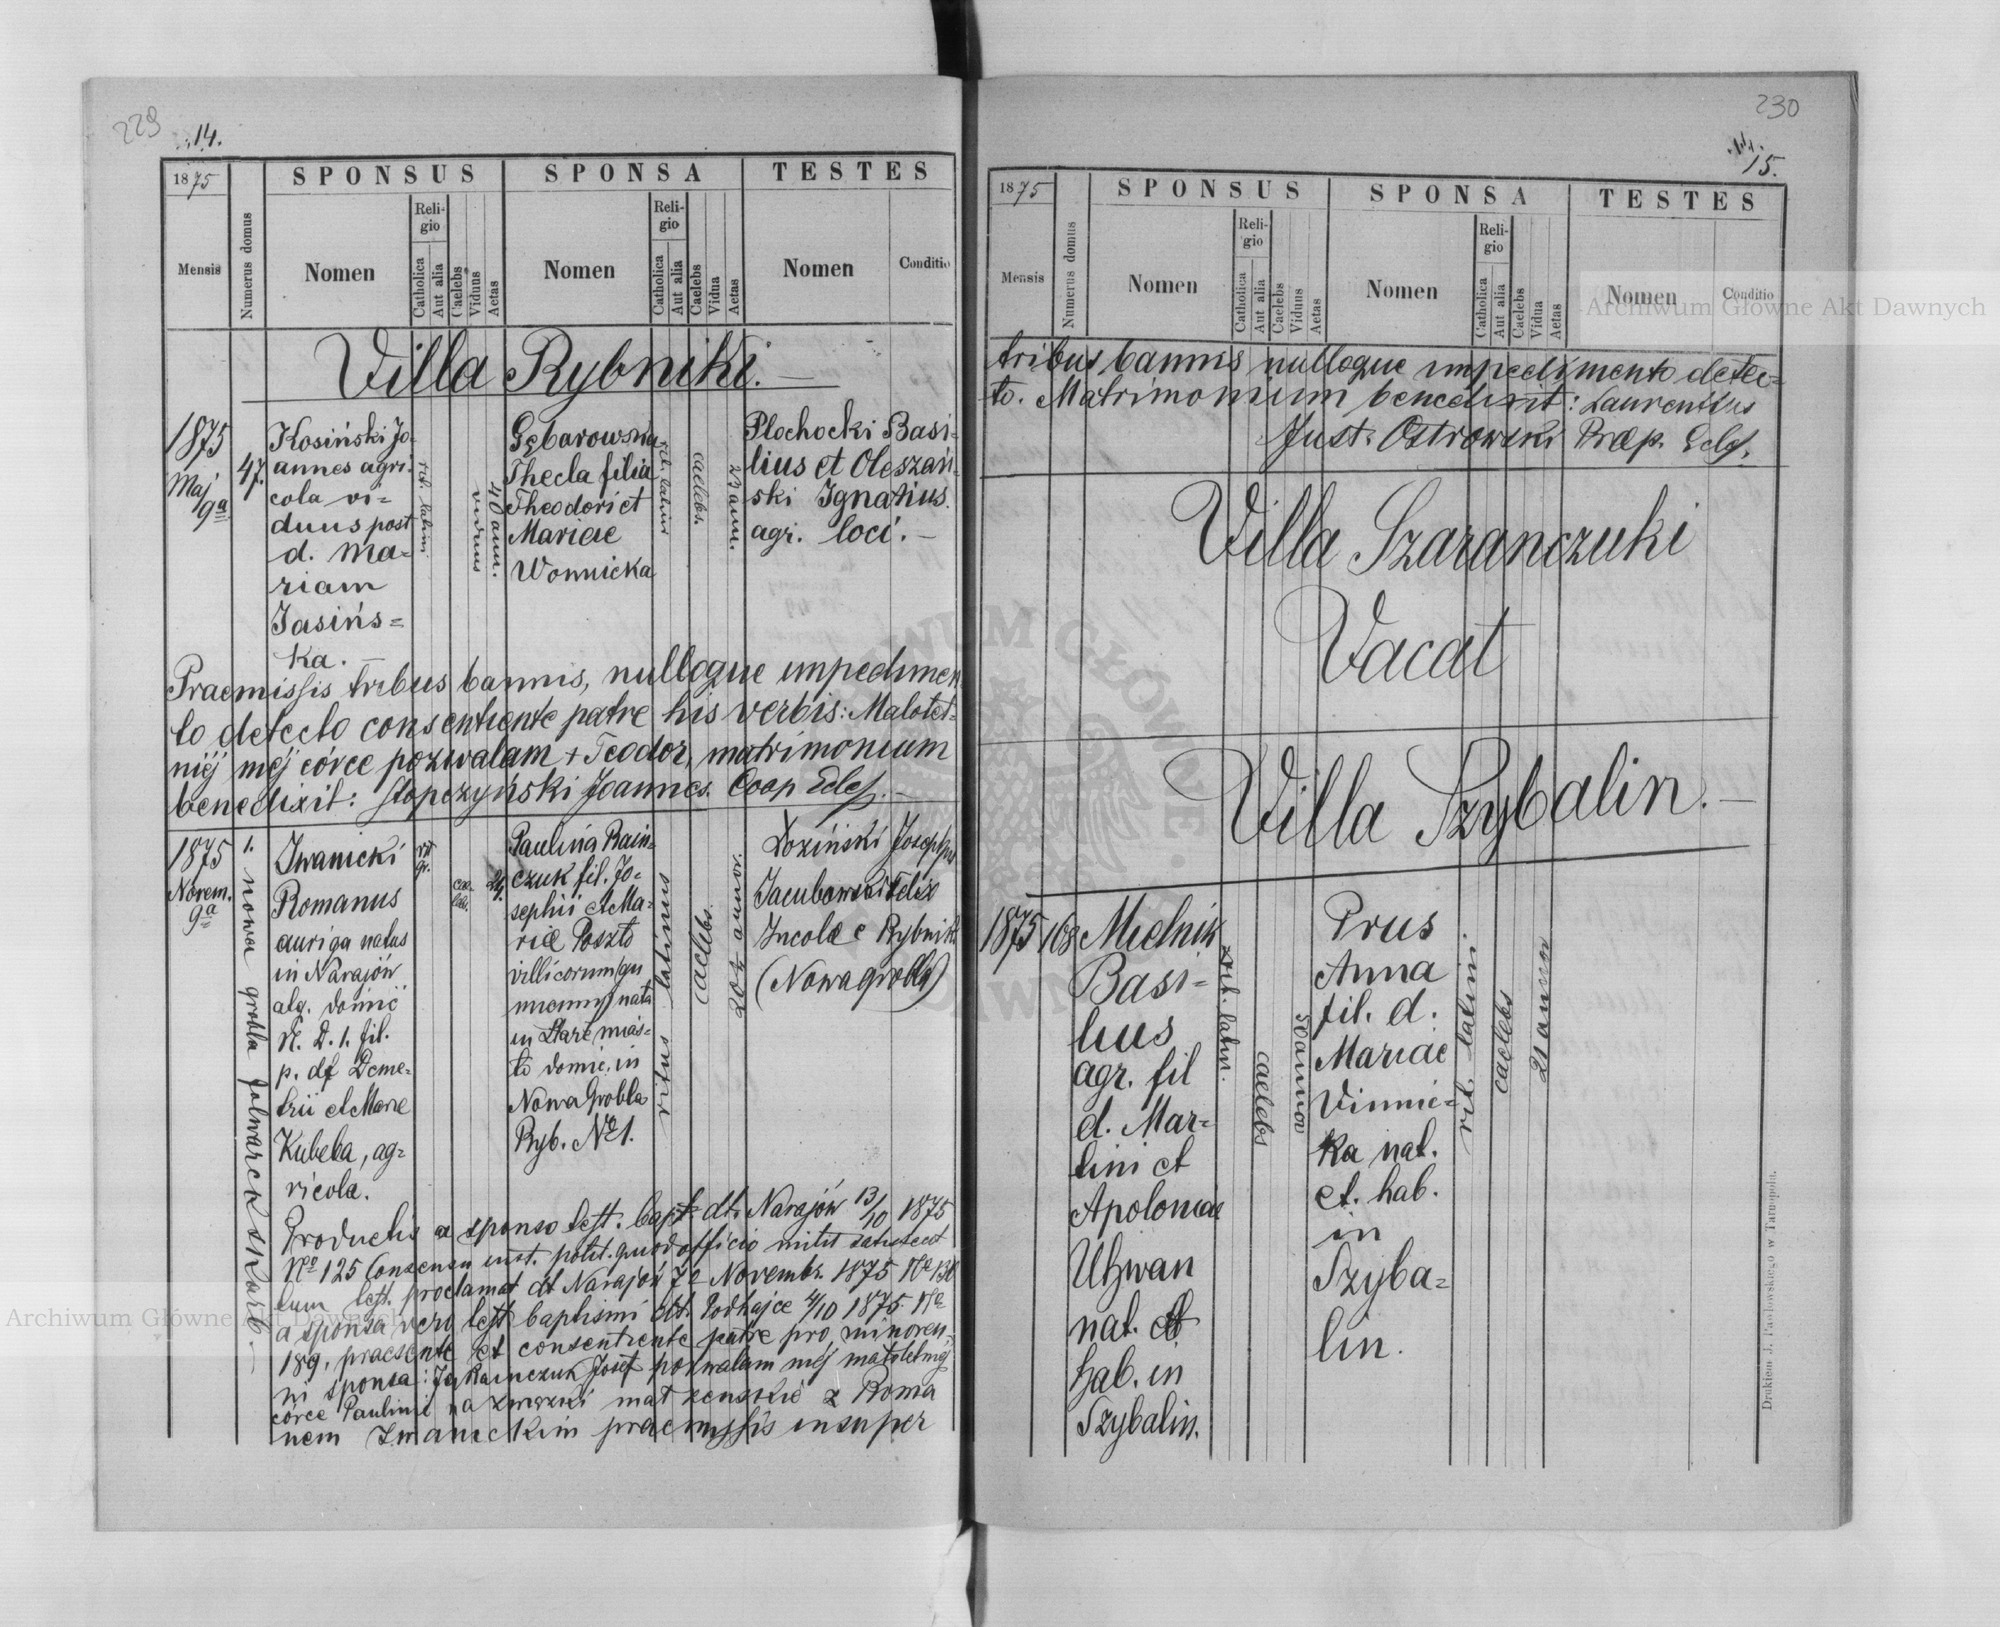 229
14.
1875
SPONSUS
SPONSA
TESTES
Mensis
Numerus domus
Nomen
Religio
Catholica
Aut alia
Caelebs
Viduus
Aetas
Nomen
Religio
Catholica
Aut alia
Caelebs
Vidua
Aetas
Nomen
Conditio
Villa Rybniki.
1875
Maj
9a
47.
Kosiński Jo-
annes agri-
cola vi-
duus post
d. Ma-
riam
Jasińs=
ka.
rit. latini
viduus
40 ann.
Gębarowska
Thecla filia
Theodori et
Mariae
Wonnicka
rit. latini
caelebs.
23 ann.
Płochocki Basi-
lius et Oleszań-
ski Ignatius.
agr. loci.
Praemissis tribus bannis, nulloque impedimen
to detecto consentiente patre his verbis: Małolet-
niéj méj córce pozwalam + Teodor, matrimonium
benedixit: Słopczyński Joannes. Coop Eccl.
1875
Novem.
9a
1. nowa grobla folwarek skarb.
Iwanicki
Romanus
auriga natus
in Narajów
alq. domic
N. D. 1. fil.
p. df Deme-
trii et Mariae
Kubeba, ag=
ricola.
rit
gr.
cae-
lebs.
24.
Paulina Bain-
czuk fil. Jo-
sephi et Ma-
riae Poszto
villicorum
nata
in Stare mias-
to domic. in
Nowa Grobla
Ryb. No 1.
ritus latini
caelebs.
20¾ annor.
Łoziński Josephus
Jacubowski Felix
Incolae e Rybnik
(Nowa grobla)
Productis a sponso test. bapt. dt. Narajów 13/10 1875
No 125 Consensu inst. polit. quod officio milit satisfecit
tum test. proclamat dt Narajów 7a Novembr. 1875 No 130
a sponsa vero test baptismi dt. Podhajce 4/10 1875 No
189, praesente et consentiente patre pro minoren-
ni sponsa: Ja Rainczuk Josef pozwalam méj małoletniéj
córce Paulinie na związki małżenskie z Roma
nem Iwanickim praemissis insuper
230
15.
1875
SPONSUS
SPONSA
TESTES
Mensis
Numerus domus
Nomen
Religio
Catholica
Aut alia
Caelebs
Viduus
Aetas
Nomen
Religio
Catholica
Aut alia
Caelebs
Vidua
Aetas
Nomen
Conditio
tribus bannis nulloque impedimento detec=
to. Matrimonium benedixit: Laurentius
Just. Ostrowski Praep. Eccl.
Villa Szaranczuki
Vacat
Villa Szybalin.
1875
168
Mielnik
Basi-
lius
agr. fil
d. Mar-
tini et
Apoloniae
Uhwan
nat. et
hab. in
Szybalin.
rit. latin.
caelebs
50 annor
Prus
Anna
fil. d.
Mariae
Vinnic-
ka nat.
et. hab.
in
Szyba=
lin.
rit. latini.
caelebs
21 annor
Drukiem J. Pawłowskiego w Tarnopolu.
Archiwum Główne Akt Dawnych
Archiwum Główne Akt Dawnych
ARCHIWUM GŁÓWNE AKT DAWNYCH